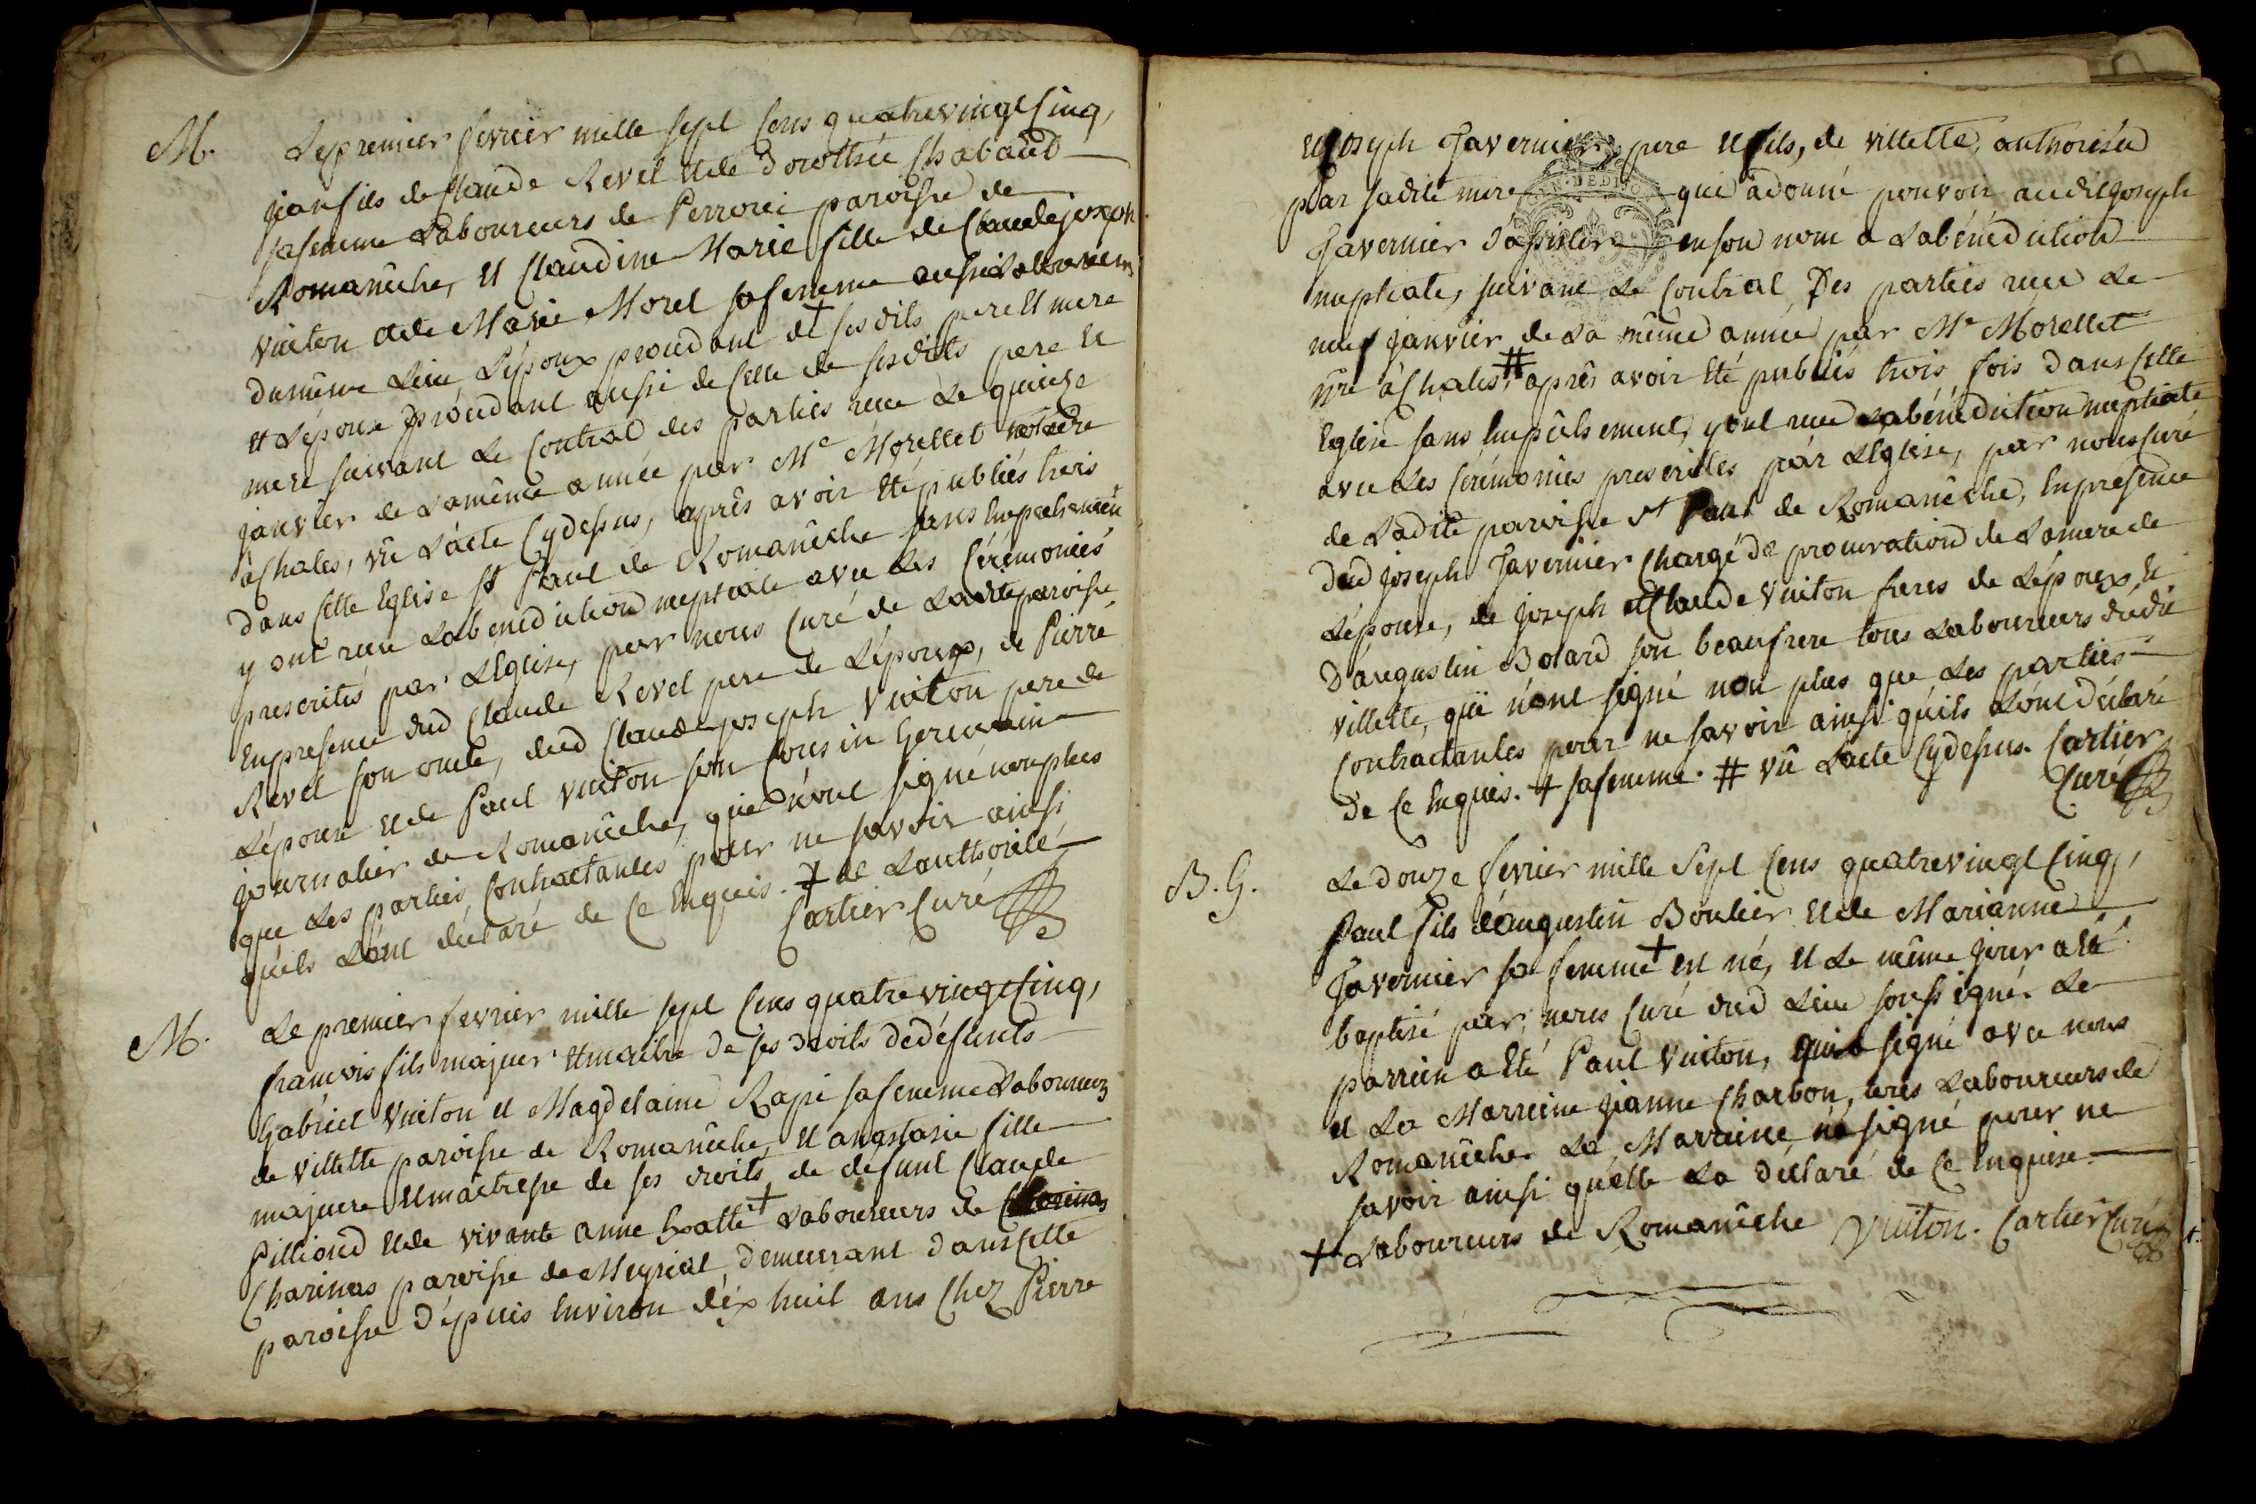 M. Le premier fevrier mille sept Cens quatrevingt Cinq,
jean fils de Claude Revel et de Dorothée Chabaud
sa femme Laboureurs de Perrorei paroisse de
Romanêche, et Claudine Marie fille de Claude joseph
Vuiton et de Marie Morel sa femme aussi Laboureurs
du même Lieu, L'époux procedant ‡ de sesdits pere et mere
et L'épouse procedant aussi de Celle de sesdits pere et
mere suivant Le Contrat des parties reçu Le quinze
janvier de La même année par Me Morellet notaire
à Chales, vû L'acte Cydessus, après avoir été publiés trois
dans Cette Eglise St Paul de Romanêche sans Empechement
y ont reçu La bénédiction nuptiale avec Les Cérémonies
prescrites par L'Eglise, par nous Curé de Ladite paroisse
En presence dud Claude Revel pere de L'époux, de Pierre
Revel son oncle, dud Claude joseph Vuiton pere de
L'épouse et de Paul Vuiton son Cousin Germain
journalier de Romanêche, qui n'ont signé non plus
que Les parties Contractantes pour ne savoir ainsi
qu'ils L'ont déclaré de Ce Enquis. ‡ de L'authorité
Cartier Curé
M. Le premier fevrier mille sept Cens quatrevingt Cinq,
françois fils majeur et maitre de ses droits de défunts
Gabriel Vuiton et Magdelaine Rapé sa femme Laboureurs
de Villette paroisse de Romanêche, et anastasie fille
majeure et maîtresse de ses droits de défunt Claude
Pilliond et de vivante anne + Laboureurs de
Charinas paroisse de Meyriat demeurant dans Cette
paroisse dépuis Environ déx huit ans Chez Pierre
et joseph Javernier, pere et fils, de villette, authorisée
par sadite mere que a donné pouvoir audit joseph
Javernier d'assister en son nom a La bénédiction
nuptiale, suivant Le Contrat Des parties reçu Le
neuf janvier de La même année par Me Morellet
nre à Chales, # après avoir été publiés trois fois dans Cette
Eglise sans Empêchement, y ont reçu La bénédiction nuptiale
avec Les Cérémonies prescrittes par L'Eglise, par nous Curé
de Ladite paroisse St Paul de Romanêche, En présence
dud joseph Javernier Chargé de procuration de La mere de
L'épouse, de joseph et Claude Vuiton freres de L'époux, et
D'augustin Botard son beaufrere tous Laboureurs dudit
villette, qui n'ont signé non plus que Les parties
Contractantes pour ne savoir ainsi qu'ils L'ont déclaré
de Ce Enquis. + sa femme. # vû L'acte Cydessus. Cartier
Curé
B. G. Le douze fevrier mille Sept Cens quatrevingt Cinq,
Paul fils d'augustin Boulier et de Marianne
Javernier sa femme + est né, et Le même jour a été
baptisé par nous Curé dud Lieu soussigné. Le
parrein a été Paul Vuiton, qui a signé avec nous
et La Marreine jeanne Charbon, tous Laboureurs de
Romanêche. La Marreine n'a signé pour ne
savoir ainsi qu'elle La déclaré de Ce Enquise.
+ Laboureurs de Romanêche Vuiton. Cartier Curé